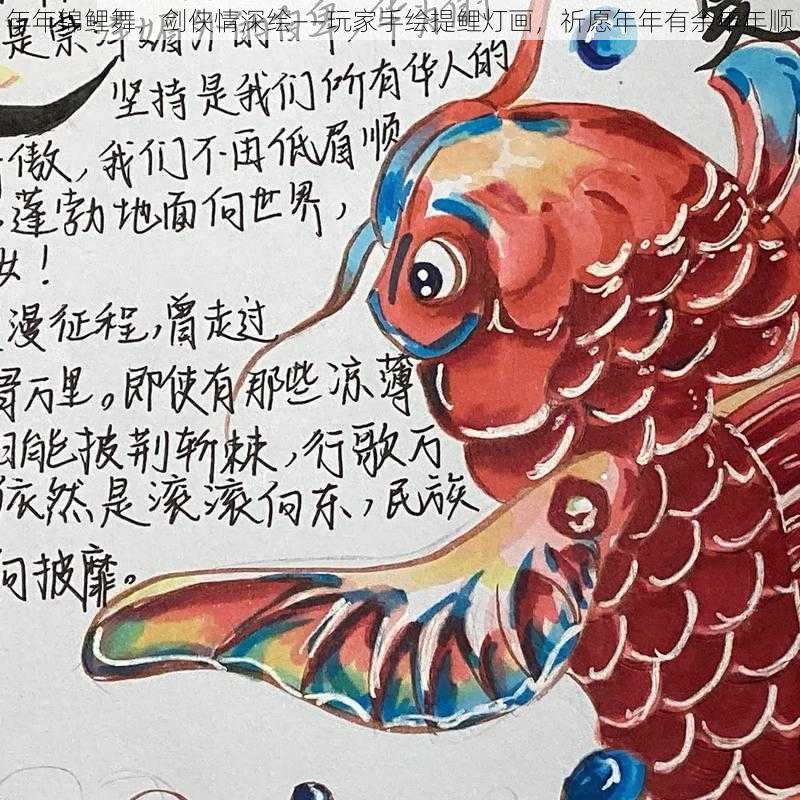 年年锦鲤舞，剑侠情深绘---玩家手绘提鲤灯画，祈愿年年有余年年顺
是崇洋媚外的
坚持是我们所有华人的
傲，我们不再低眉顺
蓬勃地面向世界，
！
漫征程，曾走过
万里。即使有那些凉薄
能披荆斩棘，行歌万
依然是滚滚向东，民族
向披靡。